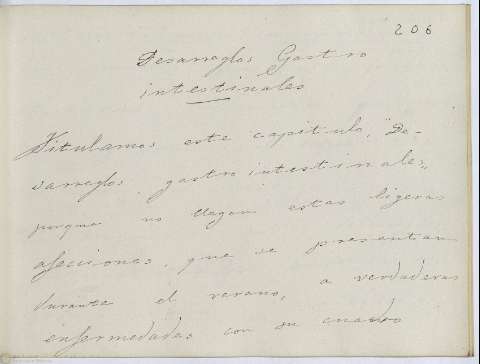 206
Desarreglos Gastro
intestinales
Titulamos este capitulo, "De-
sarreglos gastro intestinales",
porque no llegan estas ligeras
afecciones, que se presentan
durante el verano, a verdaderas
enfermedades con su cuadro